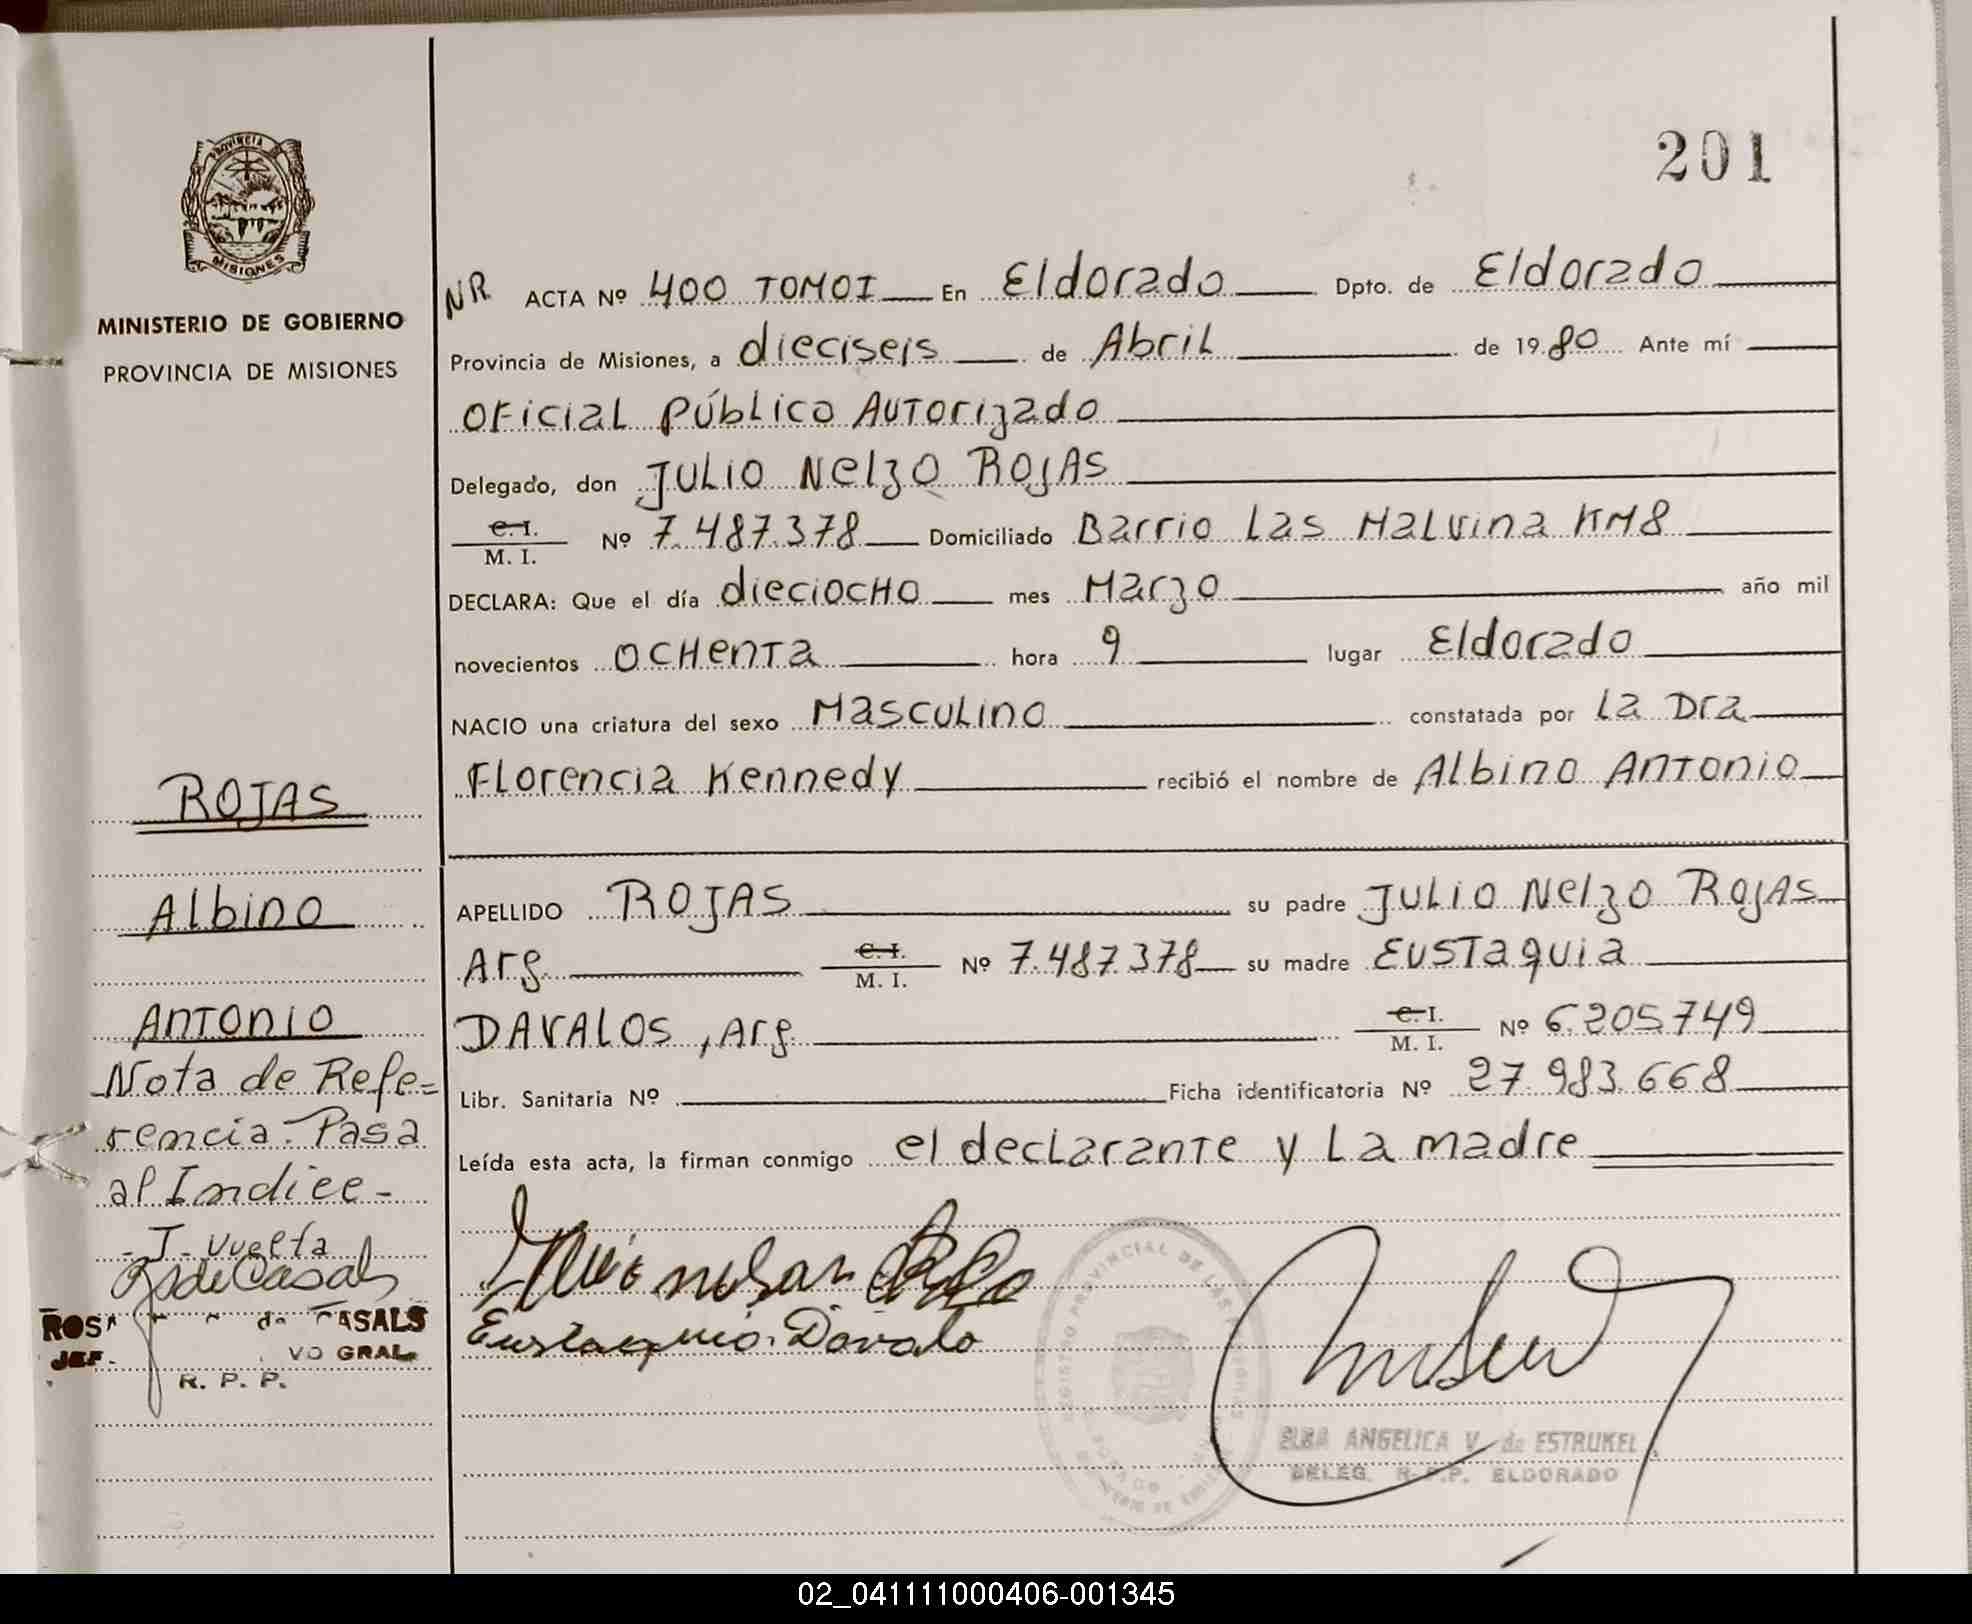 PROVINCIA
MISIONES
MINISTERIO DE GOBIERNO
PROVINCIA DE MISIONES
201
NR ACTA Nº 400 TOMO I En Eldorado Dpto. de Eldorado
Provincia de Misiones, a dieciseis de Abril de 1980 Ante mí
Oficial Público Autorizado
Delegado, don Julio Nelzo Rojas
C. I. M. I. Nº 7.487.378 Domiciliado Barrio Las Malvina KM8
DECLARA: Que el día dieciocho mes Marzo año mil
novecientos ochenta hora 9 lugar Eldorado
NACIO una criatura del sexo Masculino constatada por La Dra
Florencia Kennedy recibió el nombre de Albino Antonio
APELLIDO ROJAS su padre Julio Nelzo Rojas
Arg C. I. M. I. Nº 7.487.378 su madre Eustaquia
DAVALOS, Arg. C. I. M. I. Nº 6.205749
Libr. Sanitaria Nº Ficha identificatoria Nº 27.983.668
Leída esta acta, la firman conmigo el declarante y La madre
ROJAS
Albino
Antonio
Nota de Refe=
rencia. Pasa
al Indice -
- J. Vuelta
R. de Casals
ROSA de CASALS
JEF. VO GRAL.
R. P. P.
Eustaquio Davalo
REGISTRO PROVINCIAL DE LAS PERSONAS
ELBA ANGELICA V. de ESTRUKEL
DELEG. R.P.P. ELDORADO
02_041111000406-001345